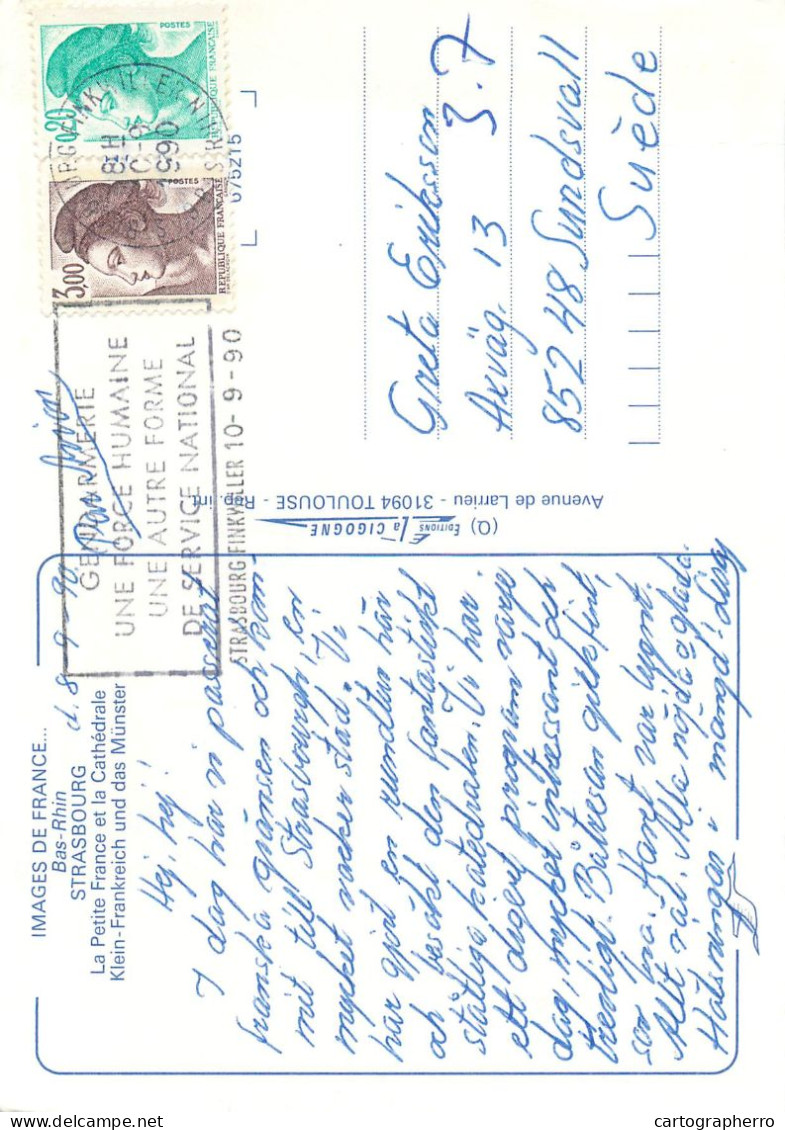 IMAGES DE FRANCE...
Bas-Rhin
STRASBOURG
La Petite France et la Cathédrale
Klein-Frankreich und das Münster
d. 8. 9 -90.
Hej, hej!
I dag har vi passerat
franska gränsen och kom-
mit till Strasbourgh, en
mycket vacker stad. Vi
har gjort en rundtur här
och besökt den fantastiskt
ståtliga katedralen. Vi har
ett digert program varje
dag, mycket intressant och
trevligt. Båtresan gick fint,
son bra. Havet var lugnt.
Allt väl. Alla nöjda o glada.
Hälsningar i mängd!
(Q) EDITIONS la CIGOGNE
Avenue de Larrieu - 31094 TOULOUSE - Rep. int.
GENDARMERIE
UNE FORCE HUMAINE
UNE AUTRE FORME
DE SERVICE NATIONAL
STRASBOURG FINKWILLER 10-9-90
POSTES
0,20
REPUBLIQUE FRANÇAISE
POSTES
3,00
REPUBLIQUE FRANÇAISE
675215
Greta Eriksson
Axväg. 13 3.7
852 48 Sundsvall
Suède
cartographerro